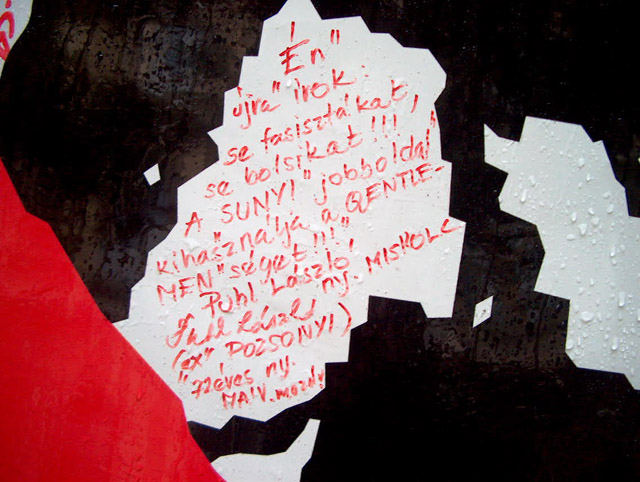 Én"
újra" írok:
se fasisztákat,
se bolsikat!!!
A SUNYI" jobboldal"
kihasználja a GENTLE-
MEN"séget!!!"
Puhl László
ny. MISKOLC
(ex" POZSONYI)
"72éves ny.
MÁV.mozdy